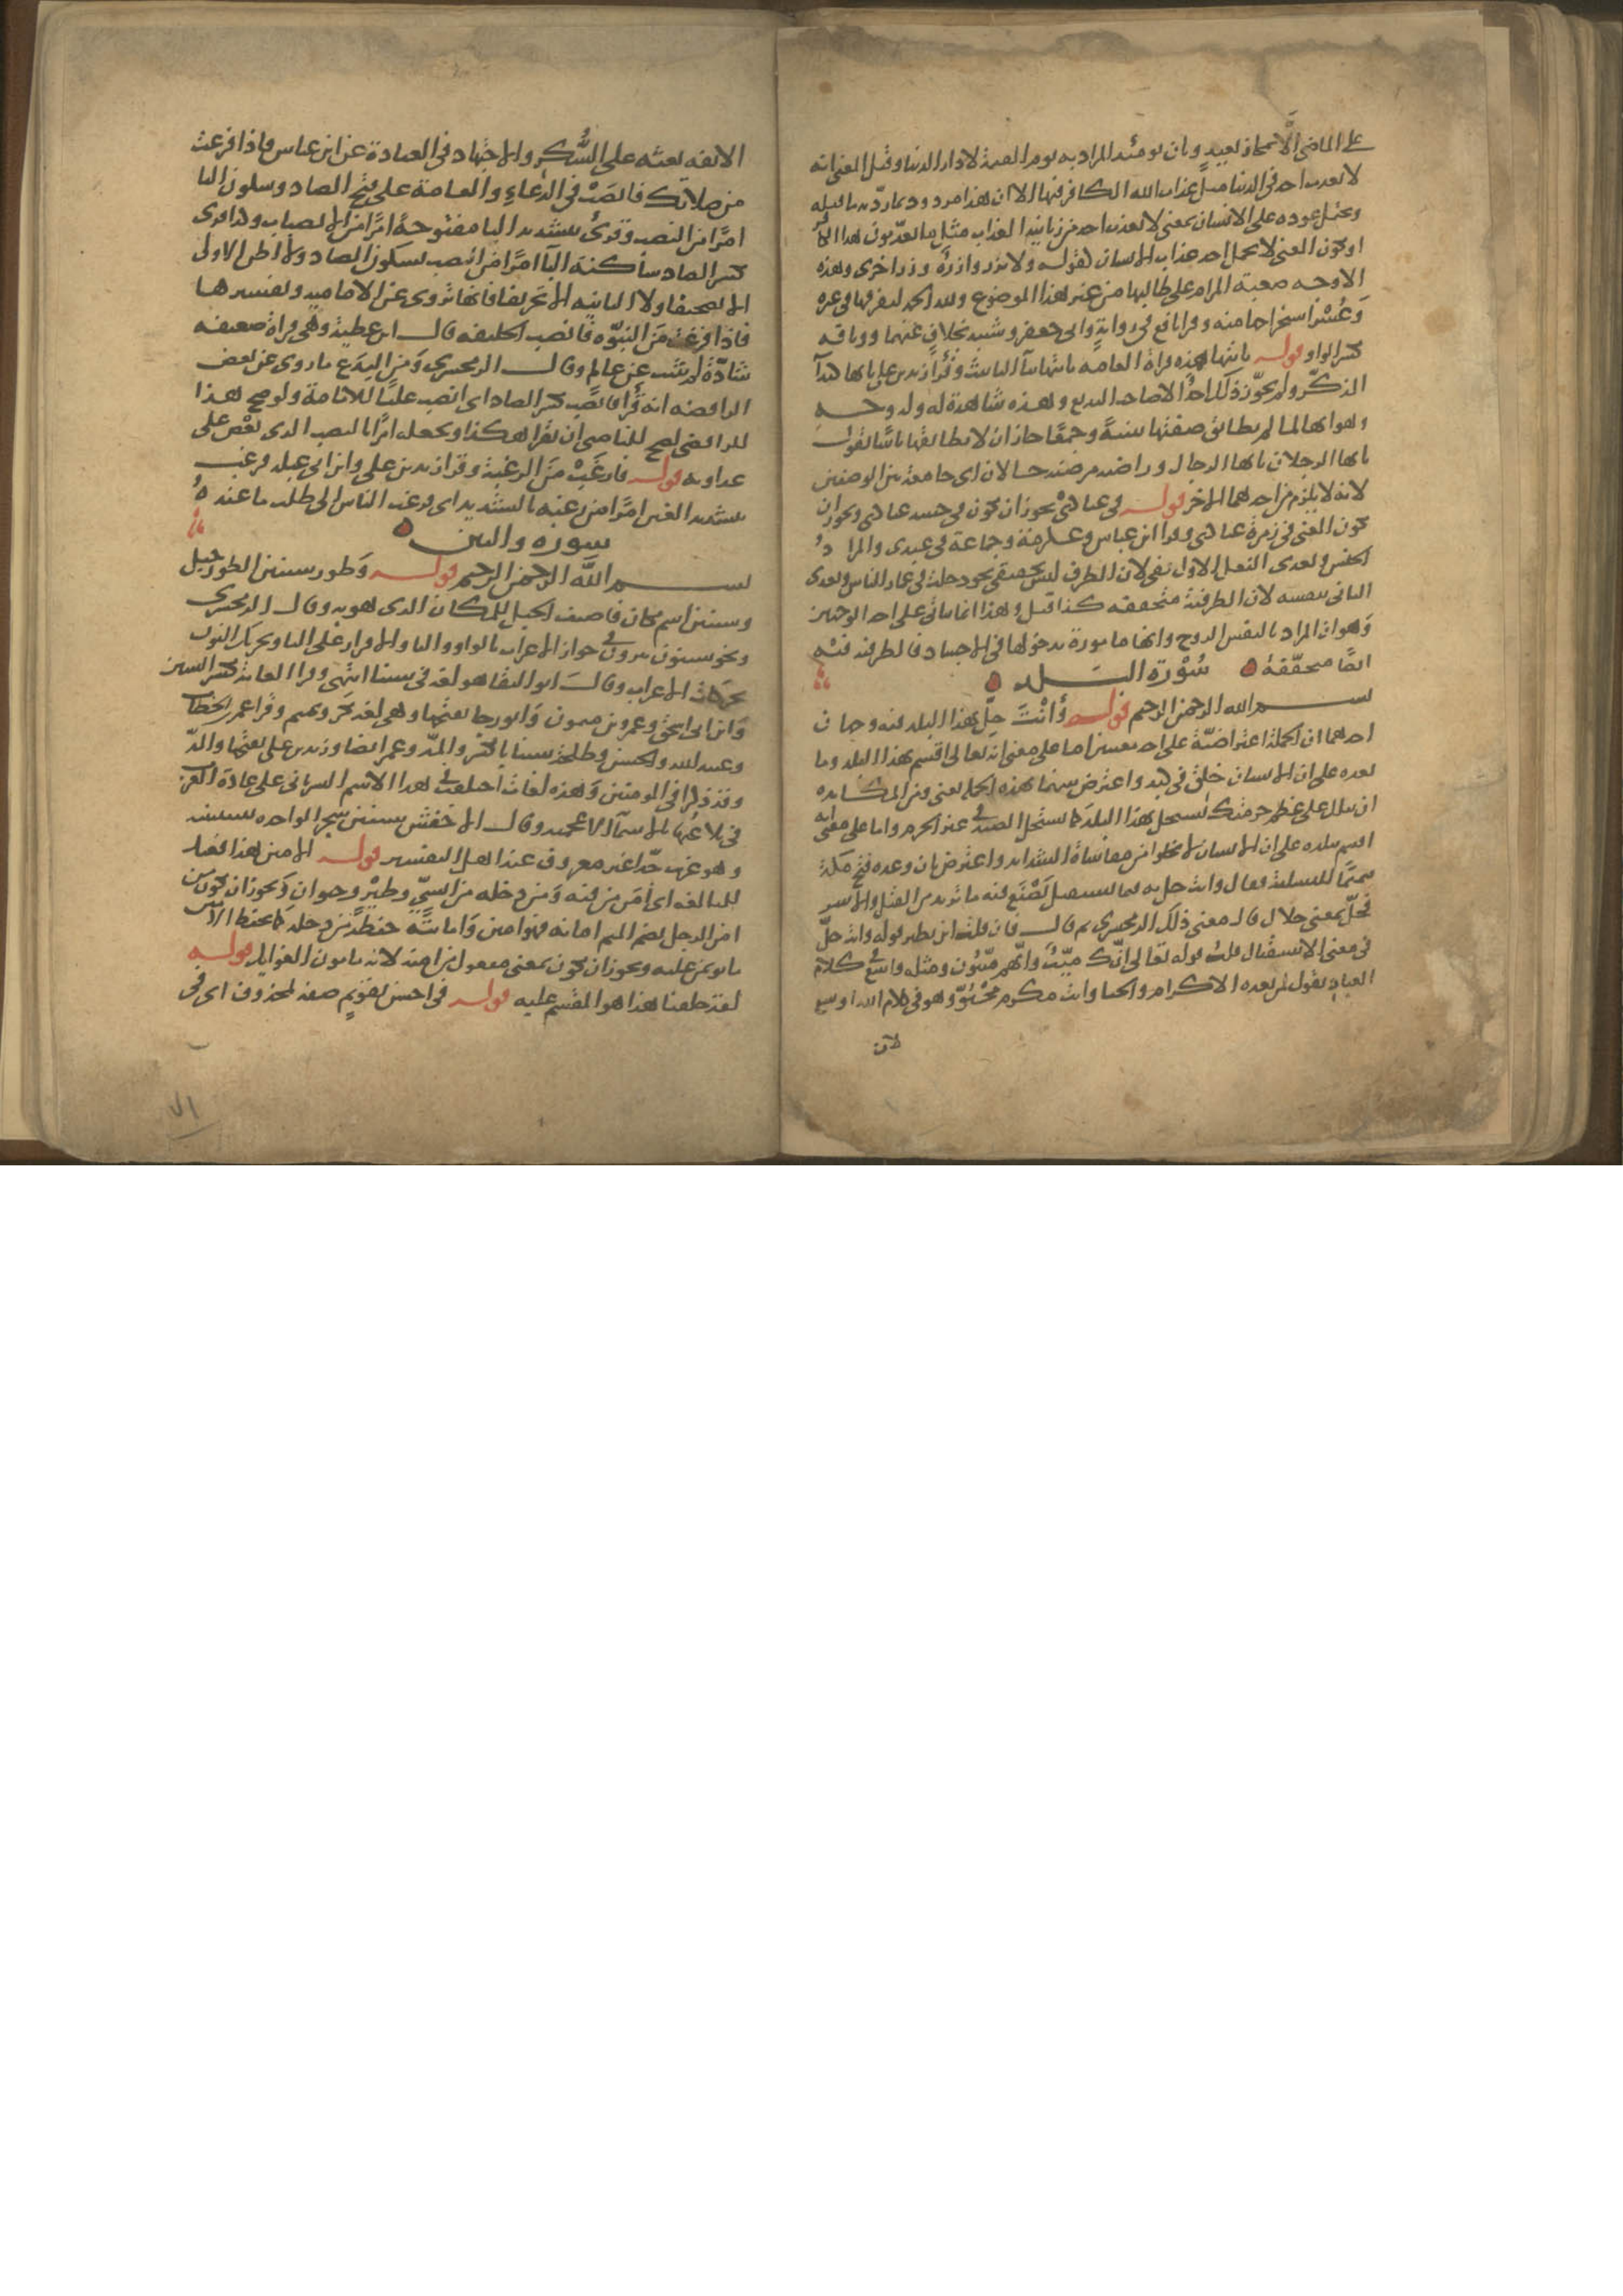 على الماضي الا بمجاز بعيد وبان يومئذ المراد به يوم القيمة لا دار الدنيا وقيل المعنى انه
لا يعذب احد في الدنيا مثل عذاب الله الكافر فيها الا ان هذا مردود بما ردّ به ما قبله
ويحتمل عوده على الانسان بمعنى لا يعذب احد من زبانية العذاب مثل ما يعذبون هذا الكافر
او يكون المعنى لا يحمل احد عذاب الانسان لقوله ولا تزر وازرة وزر اخرى وهذه
الاوجه صعبة المرام على طالبها من غير هذا الموضوع ولله الحمد لتفرقها في غيره
وعُسْر استخراجها منه وقرا نافع في رواية وابي جعفر وشيبة بخلاف عنهما ووثاقه
بكسر الواو قوله يا ايتها هذه قراة العامة يا ايتها بتاء التانيث وقرأ زيد بن علي يا ايها كنداء
المذكر ولم يجوّز ذلك احد الا صاحب البديع وهذه شاهدة له وله وجــه
وهو انها لما لم يطابق صفتها تثنيةً وجمعًا جاز ان لا يطابقها تانيثا تقول
يا ايها الرجلان يا ايها الرجال وراضية مرضية حالان اي جامعة بين الوصفين
لانه لا يلزم من احدهما الاخر قوله في عبادي يجوز ان يكون في جسد عبادي ويجوز ان
يكون المعنى في زمرة عبادي وقرا ابن عباس وعكرمة وجماعة في عبدي والمراد
الجنس وتعدى الفعل الاول بفي لان الظرف ليس بحقيقي نحو دخلت في غمار الناس وتعدى
الثاني بنفسه لان الظرفية متحققة كذا قيل وهذا انما ياتي على احد الوجهين
وهو ان المراد بالنفس الروح وانها مامورة بدخولها في الاجساد فالظرفية فيه
ايضًا متحققة سُوْرَة البــلد
بســم الله الرحمن الرحيم قوله وأَنْتَ حِلّ بهذا البلد فيه وجهان
احدهما ان الجملة اعتراضيّة على احد معنيين اما على معنى انه تعالى اقسم بهذا البلد وما
بعده على ان الانسان خلق في كبد واعترض بينهما بهذه الجملة يعني ومن المكابدة
ان مثلك على عظم حرمتك يستحل بهذا البلد كما يستحل الصيد في غير الحرم واما على معنى انه
اقسم ببلده على ان الانسان لا يخلو من مقاساة الشدايد واعترض بان وعده فتح مكة
تتميما للتسلية فقال وانت حل به فيما يستقبل تَصْنَع فيه ما تريد من القتل والاسر
فحلّ بمعنى حلال قال معنى ذلك الزمخشري ثم قال فان قلت اين نظير قوله وانت حلّ
في معنى الاستقبال قلت قوله تعالى انّك ميّت وانهم ميّتون ومثله واسع في كلام
العباد تقول لمن تعده الاكرام والحبا وانت مكرم محْبُوّ وهو في كلام الله اوسع
لان
الانفه يعثه على الشُّكر والاجتهاد في العبادة عن ابن عباس فاذا فرغت
من صلاتك فانصَبْ في الدعاءِ والعامة على فتح الصاد وسكون البا
امرًا من النصب وقرئ بتشديد البا مفتوحةً امرًا من الانصباب وكذا قرئ
بكسر الصاد ساكنة البا امرًا من انصب بسكون الصاد ولا اظن الاولى
الا تصحيفا ولا الثانية الا تحريفا فانها تروى عن الامامية وتفسيرها
فاذا فرغت من النبوّه فانصب الخليفة قال ابن عطية وهي قراة ضعيفة
شاذّة لم تثبت عن عالم وقال الزمخشري ومن البِدَع ما روي عن بعض
الرافضة انه قُرا فانصِب بكسر الصاد اي انصب عليًا للامامة ولو صح هذا
للرافضي لصح للناصبي ان يقراه هكذا ويجعله امرًا بالنصب الذي بُغْض علي
عداوته قوله فارغَبْ من الرغبة وقرا زيد بن علي وابن ابي عبلة فرغب
بتشديد الغين امرًا من رغبه بالتشديد اي فرغب الناس الى طلب ما عنده
سوره والتين
بســم اللّه الرحمن الرحيم قوله وَطور سينين الطور جبل
وسينين اسم مكان فاضيف الجبل للمكان الذي هو به وقال الزمخشري
ونحو سينون يبرون في جواز الاعراب بالواو والياء والاقرار على اليا وتحريك النون
بحركات الاعراب وقال ابو البقا هو لغة في سينا انتهى وقرا العامة بكسر السين
وابن ابي اسحق وعمرو بن ميمون وابو رجا بفتحها وهي لغة بكر وتميم وقرا عمر بن الخطاب
وعبد الله والحسن وطلحة سينا بالكسر والمدّ وعمر ايضا وزيد بن علي بفتحها والمدّ
وقد ذكرا في المومنين وهذه لغات اختلفت في هذا الاسم السرياني على عادة العرب
في تلاعُبها بالاسماء الاعجمية وقال الاخفش سينين شجر الواحدة سينينه
وهو غريب جدّا غير معروف عند اهل التفسير قوله الامين هذا فعيل
للمبالغة اي أمن من فيه ومن دخله من انسيّ وطيْرٍ وحيوان ويجوز ان يكون من
امُن الرجل بضم الميم امانة فهو امين وامانته حفظه من دخله كما يحفظ الامين
ما يوتمن عليه ويجوز ان يكون بمعنى مفعول من امنه لانه مامون الغوايل قوله
لقد خلقنا هذا هو المقسم عليه قوله في احسن تقويمٍ صفة لمحذوف اي في
٧١